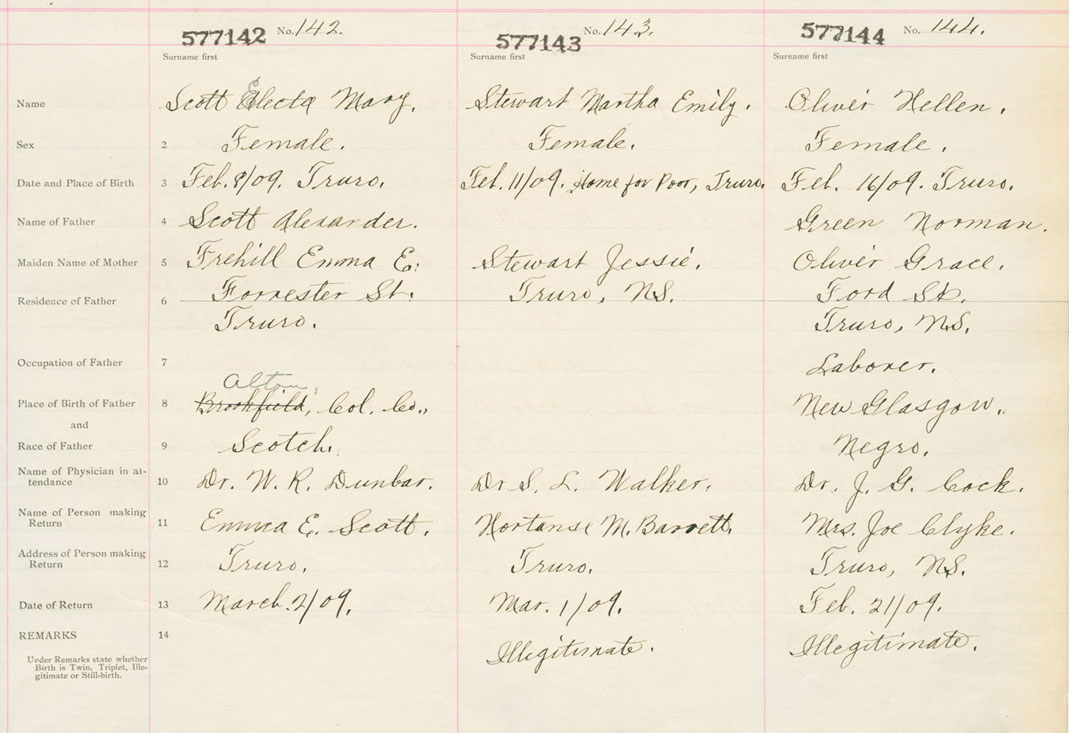 577142 No. 142. 577143 No. 143. 577144 No. 144.
Surname first Surname first Surname first
Name Scott Electa Mary. Stewart Martha Emily. Oliver Hellen.
Sex 2 Female. Female. Female.
Date and Place of Birth 3 Feb. 8/09. Truro. Feb. 11/09. Home for Poor, Truro. Feb. 16/09. Truro.
Name of Father 4 Scott Alexander. Green Norman.
Maiden Name of Mother 5 Frehill Emma E. Stewart Jessie. Oliver Grace.
Residence of Father 6 Forrester St. Truro, NS. Ford St.
Truro. Truro, NS.
Occupation of Father 7 Laborer.
Alton,
Place of Birth of Father 8 Brookfield, Col. Co., New Glasgow.
and
Race of Father 9 Scotch. Negro.
Name of Physician in at-
tendance 10 Dr. W. R. Dunbar. Dr S. L. Walker. Dr. J. G. Cock.
Name of Person making
Return 11 Emma E. Scott. Hortanse M. Barrett. Mrs. Joe Clyke.
Address of Person making
Return 12 Truro. Truro. Truro, NS.
Date of Return 13 March. 2/09. Mar. 1/09. Feb. 21/09.
REMARKS 14 Illegitimate. Illegitimate.
Under Remarks state whether
Birth is Twin, Triplet, Ille-
gitimate or Still-birth.